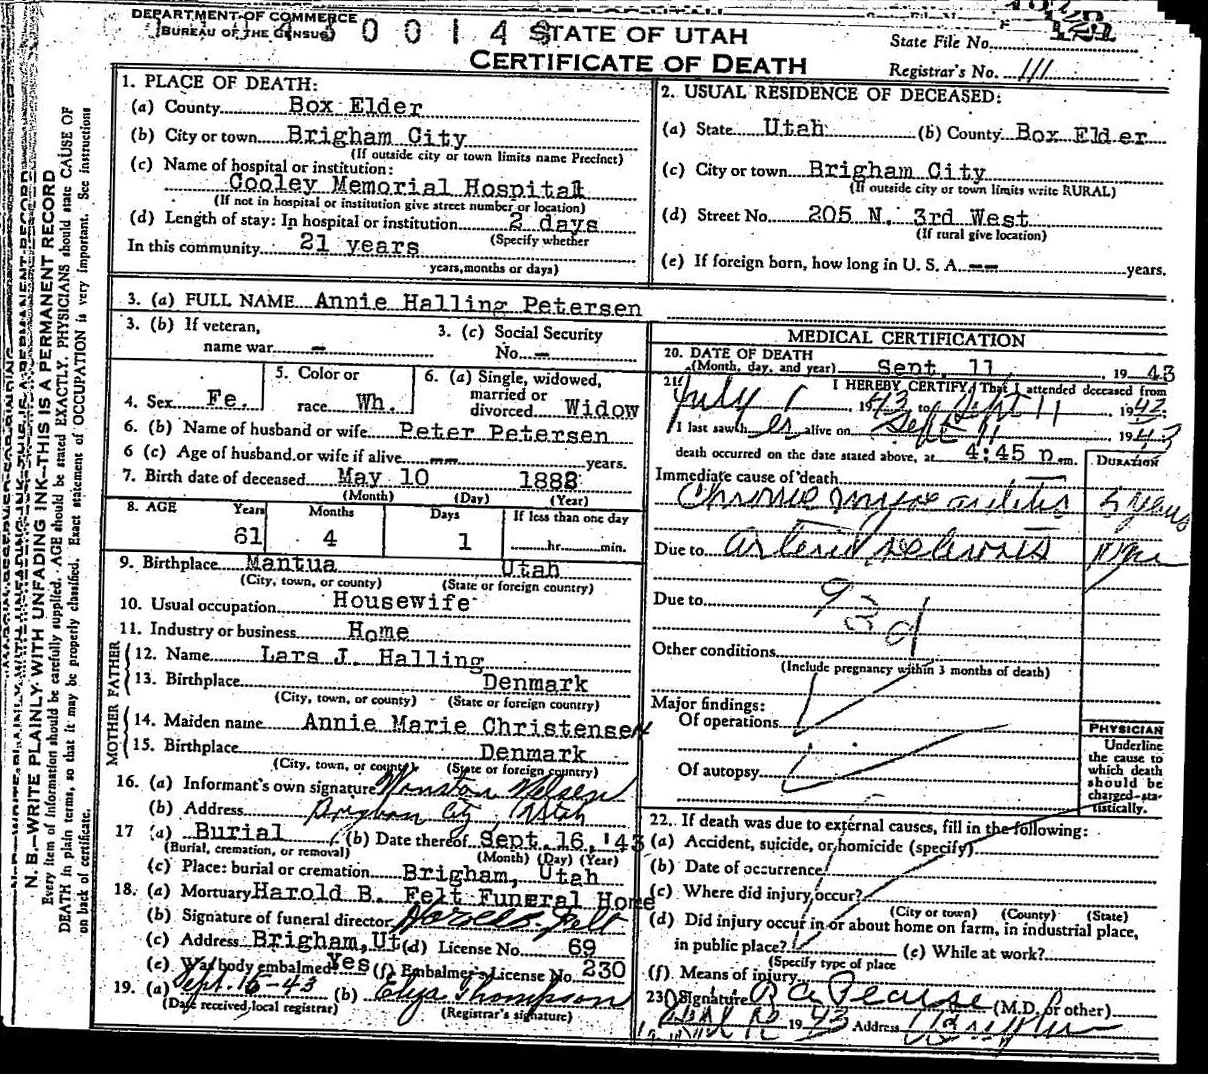 DEPARTMENT OF COMMERCE
BUREAU OF THE CENSUS
STATE OF UTAH
CERTIFICATE OF DEATH
State File No.
Registrar's No. 111
1. PLACE OF DEATH:
(a) County Box Elder
(b) City or town Brigham City
(If outside city or town limits name Precinct)
(c) Name of hospital or institution:
Cooley Memorial Hospital
(If not in hospital or institution give street number or location)
(d) Length of stay: In hospital or institution 2 days
(Specify whether
In this community 21 years
years, months or days)
2. USUAL RESIDENCE OF DECEASED:
(a) State Utah (b) County Box Elder
(c) City or town Brigham City
(If outside city or town limits write RURAL)
(d) Street No. 205 N. 3rd West
(If rural give location)
(e) If foreign born, how long in U. S. A. -- years.
3. (a) FULL NAME Annie Halling Petersen
3. (b) If veteran, name war -
3. (c) Social Security No. -
4. Sex Fe.
5. Color or race Wh.
6. (a) Single, widowed, married or divorced Widow
6. (b) Name of husband or wife Peter Petersen
6 (c) Age of husband or wife if alive -- years.
7. Birth date of deceased May 10 1882
(Month) (Day) (Year)
8. AGE Years Months Days If less than one day
61 4 1 hr. min.
9. Birthplace Mantua Utah
(City, town, or county) (State or foreign country)
10. Usual occupation Housewife
11. Industry or business Home
FATHER
12. Name Lars J. Halling
13. Birthplace Denmark
(City, town, or county) (State or foreign country)
MOTHER
14. Maiden name Annie Marie Christensen
15. Birthplace Denmark
(City, town, or county) (State or foreign country)
16. (a) Informant's own signature Winston Nelsen
(b) Address Brigham City, Utah
17 (a) Burial (b) Date thereof Sept. 16, '43
(Burial, cremation, or removal) (Month) (Day) (Year)
(c) Place: burial or cremation Brigham, Utah
18. (a) Mortuary Harold B. Felt Funeral Home
(b) Signature of funeral director Harold B. Felt
(c) Address Brigham, Ut (d) License No. 69
(e) Was body embalmed Yes (f) Embalmer's License No. 230
19. (a) Sept. 16-43 (b) Elza Thompson
(Date received local registrar) (Registrar's signature)
MEDICAL CERTIFICATION
20. DATE OF DEATH
(Month, day, and year) Sept. 11, 1943
21. I HEREBY CERTIFY, That I attended deceased from
July 1 1943 to Sept 11, 1943
I last saw h er alive on Sept 11 1943
death occurred on the date stated above, at 4:45 p.m.
DURATION
Immediate cause of death
Chronic myocarditis 5 years
Due to Arterio sclerosis
Due to
93d
Other conditions
(Include pregnancy within 3 months of death)
Major findings:
Of operations
Of autopsy
PHYSICIAN
Underline
the cause to
which death
should be
charged sta-
tistically.
22. If death was due to external causes, fill in the following:
(a) Accident, suicide, or homicide (specify)
(b) Date of occurrence
(c) Where did injury occur?
(City or town) (County) (State)
(d) Did injury occur in or about home on farm, in industrial place,
in public place? (e) While at work?
(Specify type of place
(f) Means of injury
23. Signature R A Pearse (M.D. or other)
1943 Address Brigham
N. B.—WRITE PLAINLY WITH UNFADING INK—THIS IS A PERMANENT RECORD
Every item of information should be carefully supplied. AGE should be stated EXACTLY. PHYSICIANS should state CAUSE OF
DEATH in plain terms, so that it may be properly classified. Exact statement of OCCUPATION is very important. See instructions
on back of certificate.